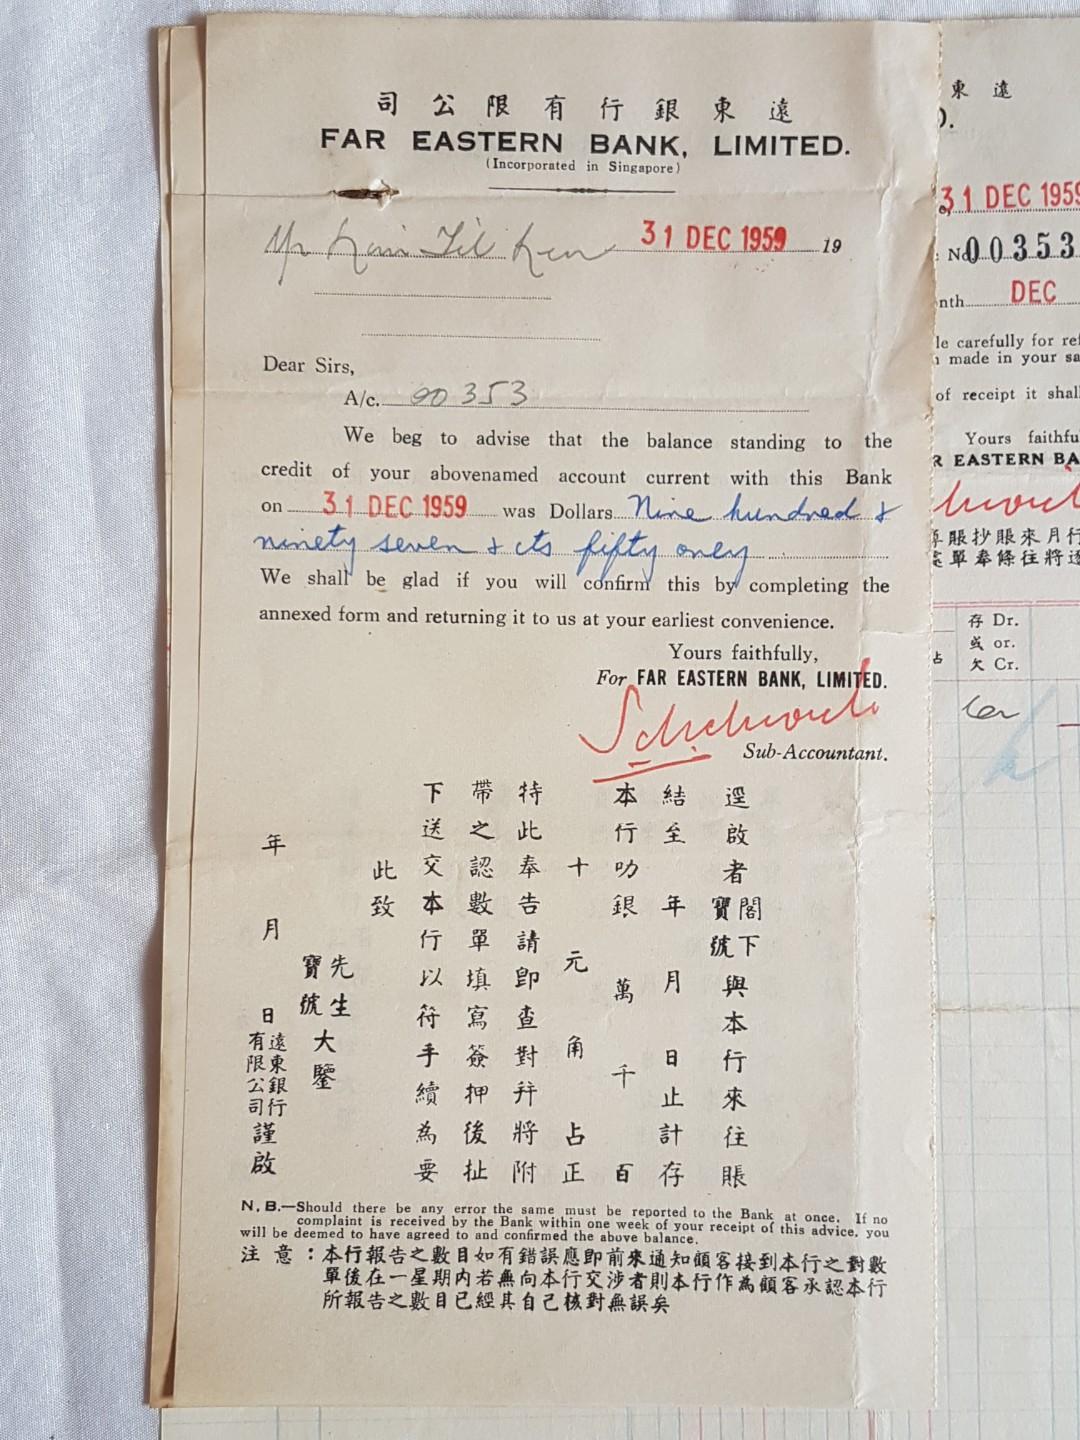 司公限有行銀東遠
FAR EASTERN BANK, LIMITED.
(Incorporated in Singapore)
31 DEC 1959 19
Dear Sirs,
A/c. 00353
We beg to advise that the balance standing to the
credit of your abovenamed account current with this Bank
on 31 DEC 1959 was Dollars Nine hundred &
ninety seven & cts fifty only
We shall be glad if you will confirm this by completing the
annexed form and returning it to us at your earliest convenience.
Yours faithfully,
For FAR EASTERN BANK, LIMITED.
Sub-Accountant.
逕啟者閣下寶號與本行來往賬
結至 年 月 日止計存
本行叻銀 萬 千 百
十 元 角 占正
特此奉告請即查對幷將附
帶之認數單填寫簽押後扯
下送交本行以符手續為要
此致
先生寶號大鑒
年 月 日遠東銀行有限公司謹啟
N.B.—Should there be any error the same must be reported to the Bank at once. If no
complaint is received by the Bank within one week of your receipt of this advice, you
will be deemed to have agreed to and confirmed the above balance.
注意：本行報告之數目如有錯誤應即前來通知顧客接到本行之對數
單後在一星期內若無向本行交涉者則本行作為顧客承認本行
所報告之數目已經其自己核對無誤矣
東遠
D.
31 DEC 1959
No 00353
nth DEC
le carefully for ref
made in your sa
of receipt it shall
Yours faithfu
R EASTERN BA
賬抄賬來月行
單奉條往將逐
存 Dr.
或 or.
欠 Cr.
占